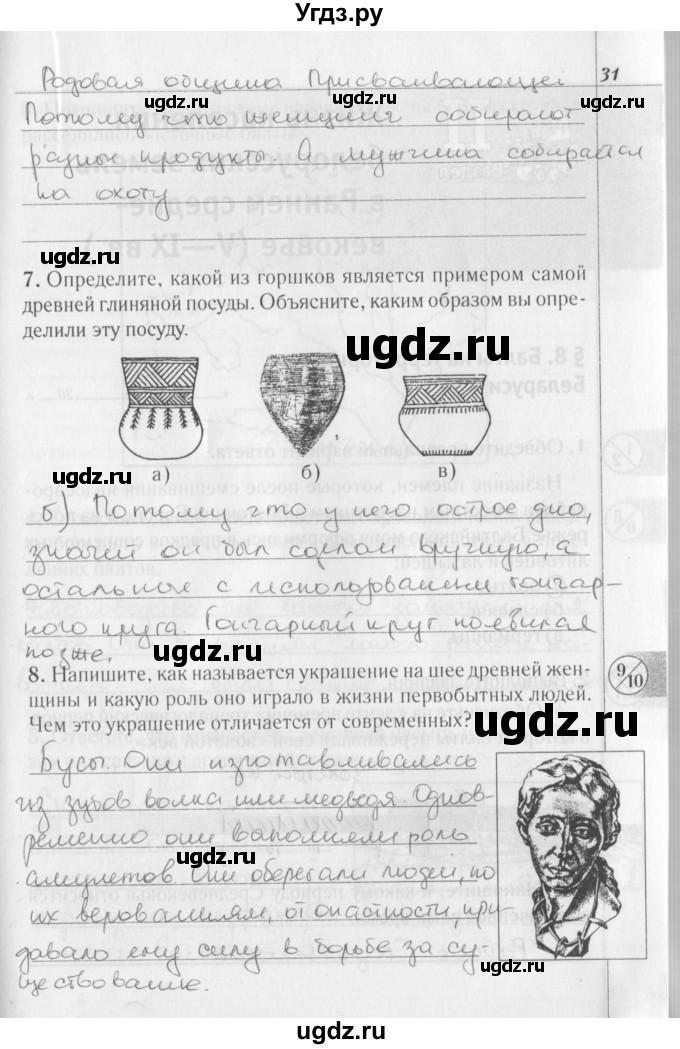 Угдз.ру
31
Родовая община Присваивающей
Потому что женщина собирают
разные продукты. А мужчина собирается
на охоту
ugdz.ru
ugdz.ru
ugdz.ru
7. Определите, какой из горшков является примером самой
древней глиняной посуды. Объясните, каким образом вы опре-
делили эту посуду.
ugdz.ru
ugdz.ru
а) б) в)
ugdz.ru
ugdz.ru
б) Потому что у него острое дно,
значит он был сделан вручную, а
остальные с использованием гончар-
ного круга. Гончарный круг появился
позже.
ugdz.ru
ugdz.ru
8. Напишите, как называется украшение на шее древней жен-
щины и какую роль оно играло в жизни первобытных людей.
Чем это украшение отличается от современных?
9/10
ugdz.ru
Бусы. Они изготавливались
из зубов волка или медведя. Однов-
ременно они выполняли роль
амулетов. Они оберегали людей, по
их верованиям, от опастности, при-
давало ему силу в борьбе за су-
ществование.
ugdz.ru
ugdz.ru
ugdz.ru
ugdz.ru